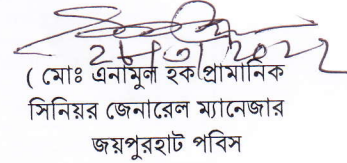 ( মোঃ এনামুল হক প্রামানিক
সিনিয়র জেনারেল ম্যানেজার
জয়পুরহাট পবিস